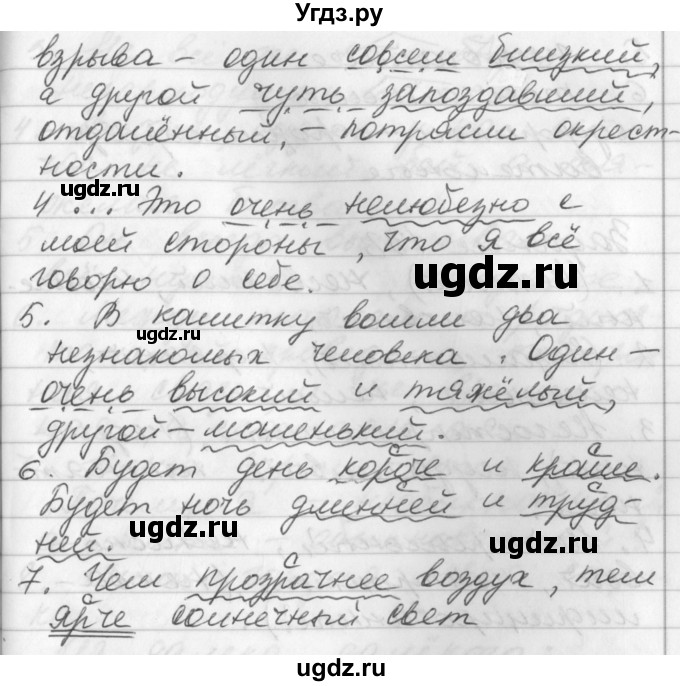 Угдз.ру
взрыва – один совсем близкий,
а другой чуть запоздавший,
отдалённый, – потрясли окрест-
ности.
ugdz.ru
4 ... Это очень нелюбезно с
моей стороны, что я всё
говорю о себе.
ugdz.ru
5. В калитку вошли два
ugdz.ru
незнакомых человека. Один –
очень высокий и тяжёлый,
другой – маленький.
6. Будет день короче и краше.
Будет ночь длинней и труд-
ugdz.ru
ugdz.ru
ней.
7. Чем прозрачнее воздух, тем
ярче солнечный свет
ugdz.ru